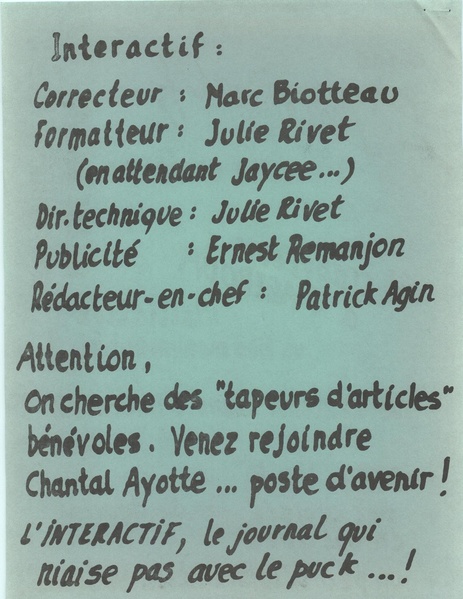 Interactif :
Correcteur : Marc Biotteau
Formatteur : Julie Rivet
(en attendant Jaycee...)
Dir. technique : Julie Rivet
Publicité : Ernest Remanjon
Rédacteur-en-chef : Patrick Agin
Attention,
on cherche des "tapeurs d'articles"
bénévoles. Venez rejoindre
Chantal Ayotte ... poste d'avenir !
L'INTERACTIF, le journal qui
niaise pas avec le puck ...!